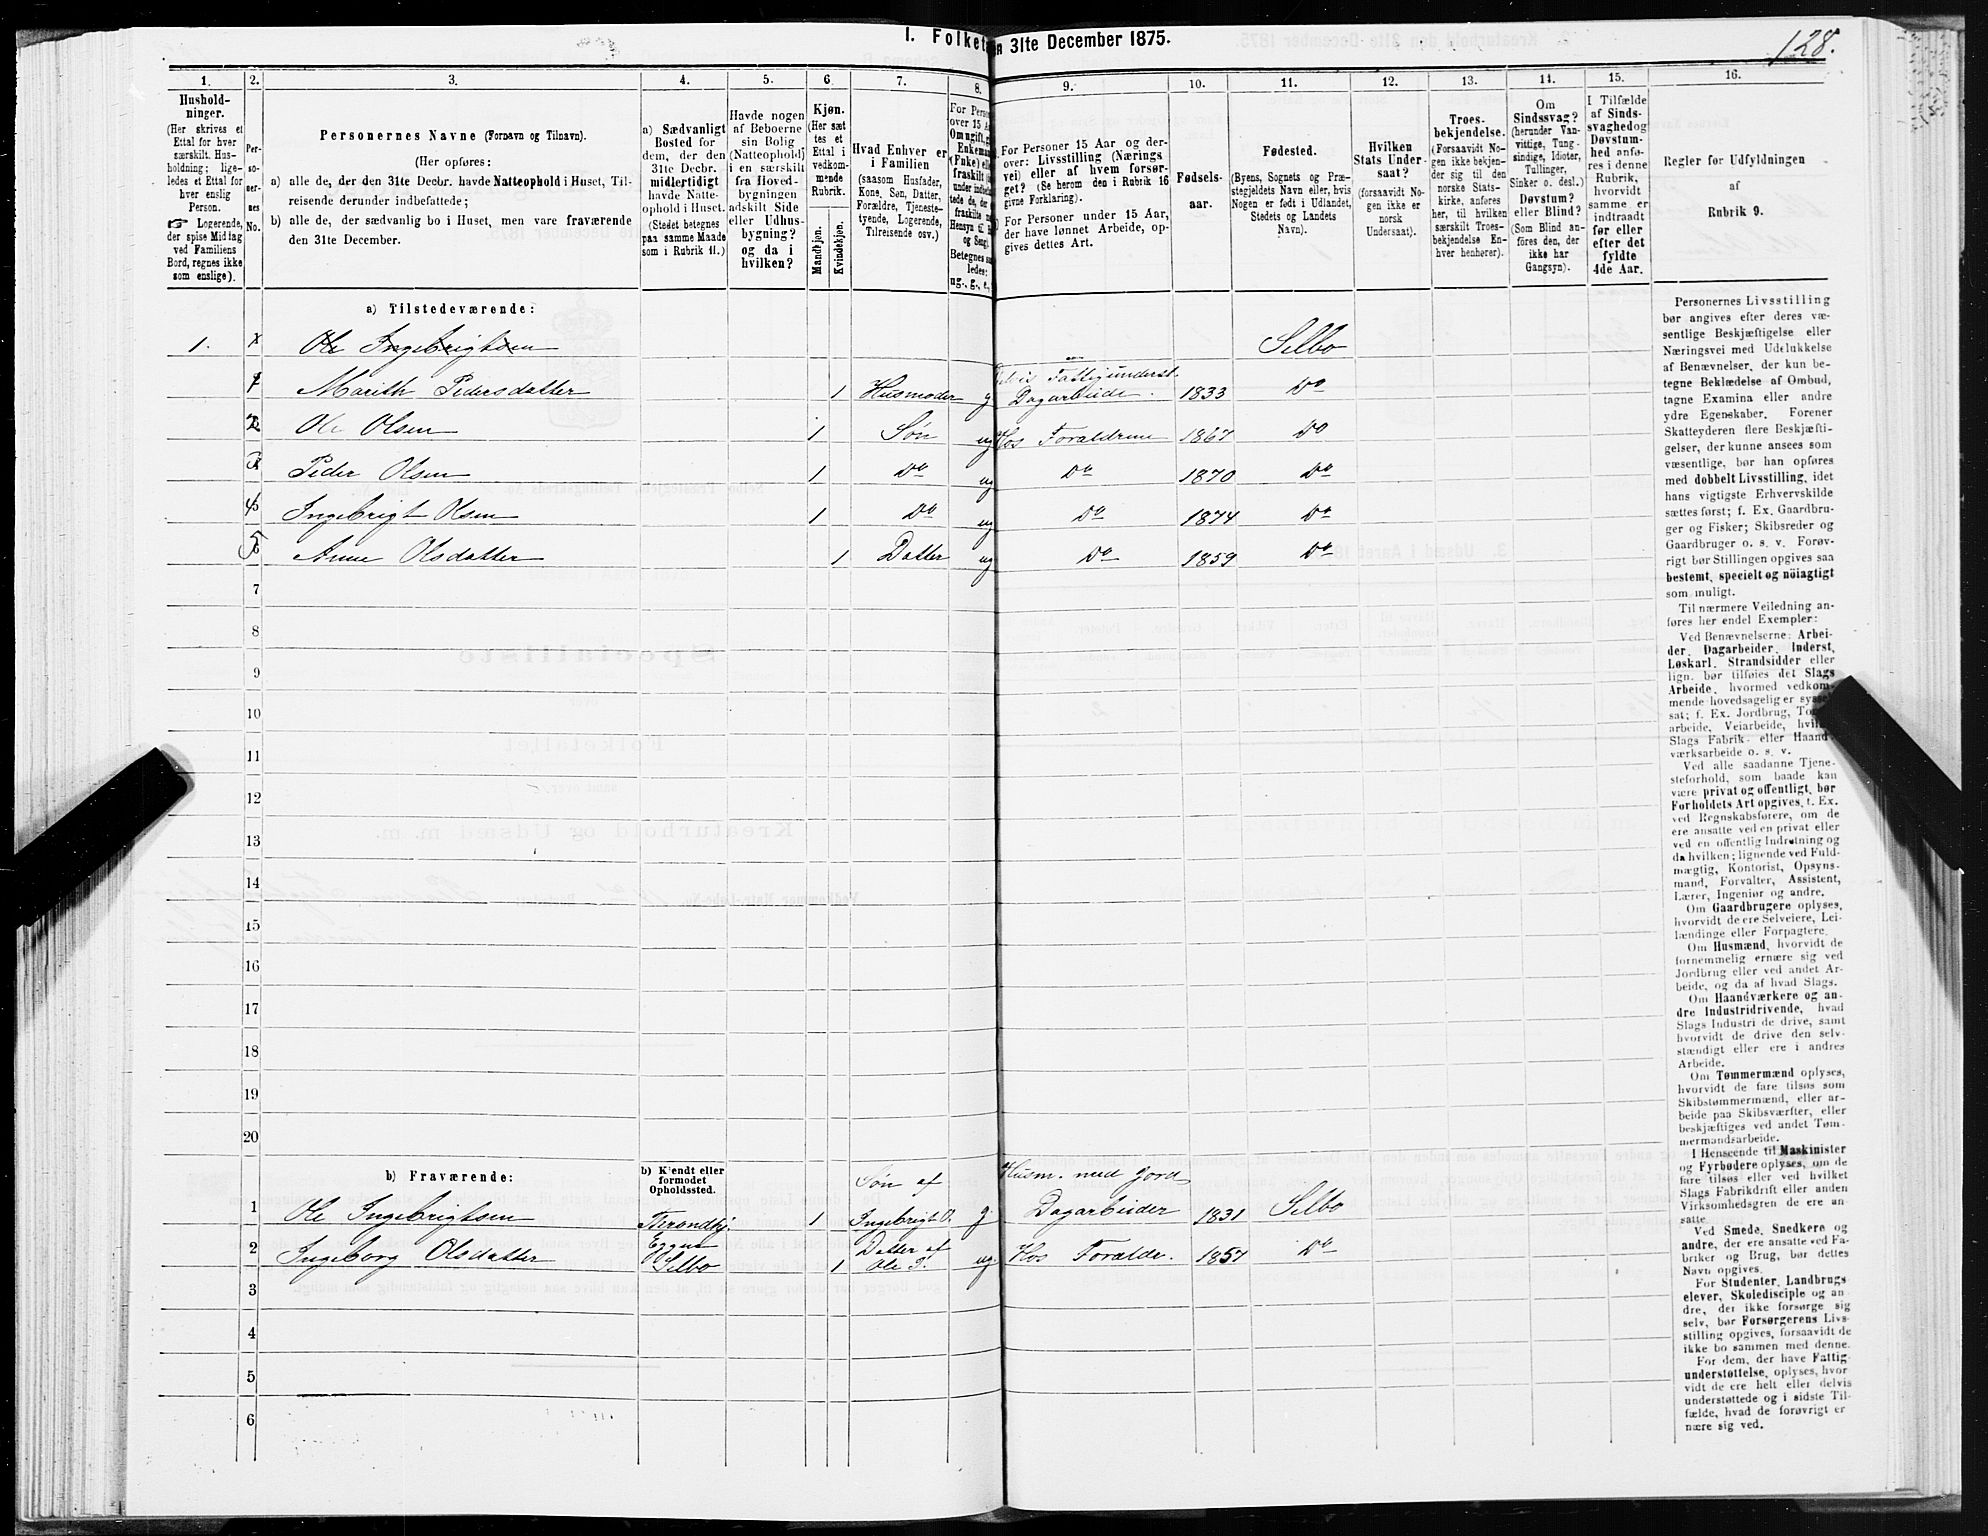 128.
I. Folket
n 31te December 1875.
1.
2.
3.
4.
5.
6.
7.
8.
9.
10.
11.
12.
13.
14.
15.
16.
Hushold-
ninger.
(Her skrives et
Ettal for hver
særskilt Hus-
holdning; lige-
ledes et Ettal for
hver enslig
Person.
Logerende,
der spise Middag
ved Familiens
Bord, regnes ikke
som enslige).
Per-
so-
ner-
nes
No.
Personernes Navne (Fornavn og Tilnavn).
(Her opføres:
a) alle de, der den 31te Decbr. havde Natteophold i Huset, Til-
reisende derunder indbefattede;
b) alle de, der sædvanlig bo i Huset, men vare fraværende
den 31te December.
a) Sædvanligt
Bosted for
dem, der den
31te Decbr.
midlertidigt
havde Natte-
ophold i Huset.
(Stedet betegnes
paa samme Maade
som i Rubrik 11.)
Havde nogen
af Beboerne
sin Bolig
(Natteophold)
i en særskilt
fra Hoved-
bygningen
adskilt Side
eller Udhus-
bygning?
og da i
hvilken?
Kjøn.
(Her sæt
tes et
Ettal i
vedkom-
mende
Rubrik.
Mandkjøn.
Kvindekjøn.
Hvad Enhver er
i Familien
(saasom Husfader,
Kone, Søn, Datter,
Forældre, Tjeneste-
tyende, Logerende,
Tilreisende osv.)
For Person
over 15 A
Om ugift, g
Enkeman
(Fnke) elle
fraskilt
Betegnes saa
ledes:
ug., g., e.,
For Personer 15 Aar og der-
over: Livsstilling (Nærings
vei) eller af hvem forsør-
get? (Se herom den i Rubrik 16
givne Forklaring).
For Personer under 15 Aar,
der have lønnet Arbeide, op-
gives dettes Art.
Fødsels-
aar.
Fødested.
(Byens, Sognets og Præ-
stegjeldets Navn eller, hvis
Nogen er født i Udlandet,
Stedets og Landets
Navn).
Hvilken
Stats Under-
saat?
(forsaavidt No-
gen ikke er
norsk
Undersaat).
Troes-
bekjendelse.
(Forsaavidt No-
gen ikke bekjen-
der sig til den
norske Stats-
kirke, anføres
her, til hvilken
særskilt Troes-
bekjendelse En-
hver henhører).
Om
Sindssvag?
(herunder Van-
vittige, Tung-
sindige, Idioter,
Tullinger,
Sinker o. desl.)
Døvstum?
eller Blind?
(Som Blind an-
føres den, der
ikke har
Gangsyn).
I Tilfælde
af Sinds-
svaghed og
Døvstum-
hed anfø-
res i denne
Rubrik,
hvorvidt
samme er
indtraadt
før eller
efter det
fyldte
4de Aar.
Regler for Udfyldningen
af
Rubrik 9.
a) Tilstedeværende:
1. Ole Ingebrigtsen Selbo
1 Marith Pedersdatter 1 Husmoder g Delvis Fattigunderst. Dagarbeide. 1833 Do
2 Ole Olsen 1 Søn ug Hos Foraldrene 1867 Do
3 Peder Olsen 1 Do ug Do 1870 Do
4 Ingebrigt Olsen 1 Do ug Do 1874 Do
5 Anne Olsdatter 1 Datter ug Do 1859 Do
7
8
9
10
11
12
13
14
15
16
17
18
19
20
b) Fraværende:
b) Kjendt eller
formodet
Opholdssted.
1 Ole Ingebrigtsen Therondhj. 1 Søn af Ingebrigt O. g. Husm. med Jord Dagarbeider 1831 Selbo
2 Ingeborg Olsdatter Eggen Selbo 1 Datter af Ole P. ug. Hos Foralde. 1857 Do
3
4
5
6
Personernes Livsstilling
bør angives efter deres væ-
sentlige Beskjæftigelse eller
Næringsvei med Udelukkelse
af Benævnelser, der kun be-
tegne Beklædelse af Ombud,
tagne Examina eller andre
ydre Egenskaber. Forener
Skatteyderen flere Beskjæfti-
gelser, der kunne ansees som
væsentlige, bør han opføres
med dobbelt Livsstilling, idet
hans vigtigste Erhvervskilde
sættes først; f. Ex. Gaardbru-
ger og Fisker; Skibsreder og
Gaardbruger o. s. v. Forøv-
rigt bør Stillingen opgives saa
bestemt, specielt og nøiagtigt
som muligt.
Til nærmere Veiledning an-
føres her endel Exempler:
Ved Benævnelserne: Arbei-
der, Dagarbeider, Inderst,
Løskarl, Strandsidder eller
lign. bør tilføies det Slags
Arbeide, hvormed vedkom-
mende hovedsagelig er syssel-
sat; f. Ex. Jordbrug, To
arbeide, Veiarbeide, hvil
Slags Fabrik- eller Haand-
værksarbeide o. s. v.
Ved alle saadanne Tjene-
steforhold, som baade kan
være privat og offentligt, bør
Forholdets Art opgives, t. Ex.
ved Regnskabsførere, om de
ere ansatte ved en privat eller
ved en offentlig Indretning og
da hvilken; lignende ved Fuld-
mægtig, Kontorist, Opsyns-
mand, Forvalter, Assistent,
Lærer, Ingeniør og andre.
Om Gaardbrugere oplyses,
hvorvidt de ere Selveiere, Lei-
lændinge eller Forpagtere.
Om Husmænd, hvorvidt de
fornemmelig ernære sig ved
Jordbrug eller ved andet Ar-
beide, og da af hvad Slags.
Om Haandværkere og an-
dre Industridrivende, hvad
Slags Industri de drive, samt
hvorvidt de drive den selv-
stændigt eller ere i andres
Arbeide.
Om Tømmermænd oplyses,
hvorvidt de fare tilsøs som
Skibstømmermænd, eller ar-
beide paa Skibsværfter, eller
beskjæftiges ved andet Tøm-
mermandsarbeide.
I Henseende til Maskinister
og Fyrbødere oplyses, om de
fare tilsøs eller ved hvilket
Slags Fabrikdrift eller anden
Virksomhedsgren de ere an-
satte.
Ved Smede, Snedkere og
andre, der ere ansatte ved Fa-
briker og Brug, bør dettes
Navn opgives.
For Studenter, Landbrugs
elever, Skoledisciple og an-
dre, der ikke forsørge sig
selv, bør Forsørgerens Livs-
stilling opgives, forsaavidt de
ikke bo sammen med denne.
For dem, der have Fattig-
understøttelse, oplyses, hvor-
vidt de ere helt eller delvis
understøttede og i sidste Til-
fælde, hvad de forøvrigt er
nære sig ved.